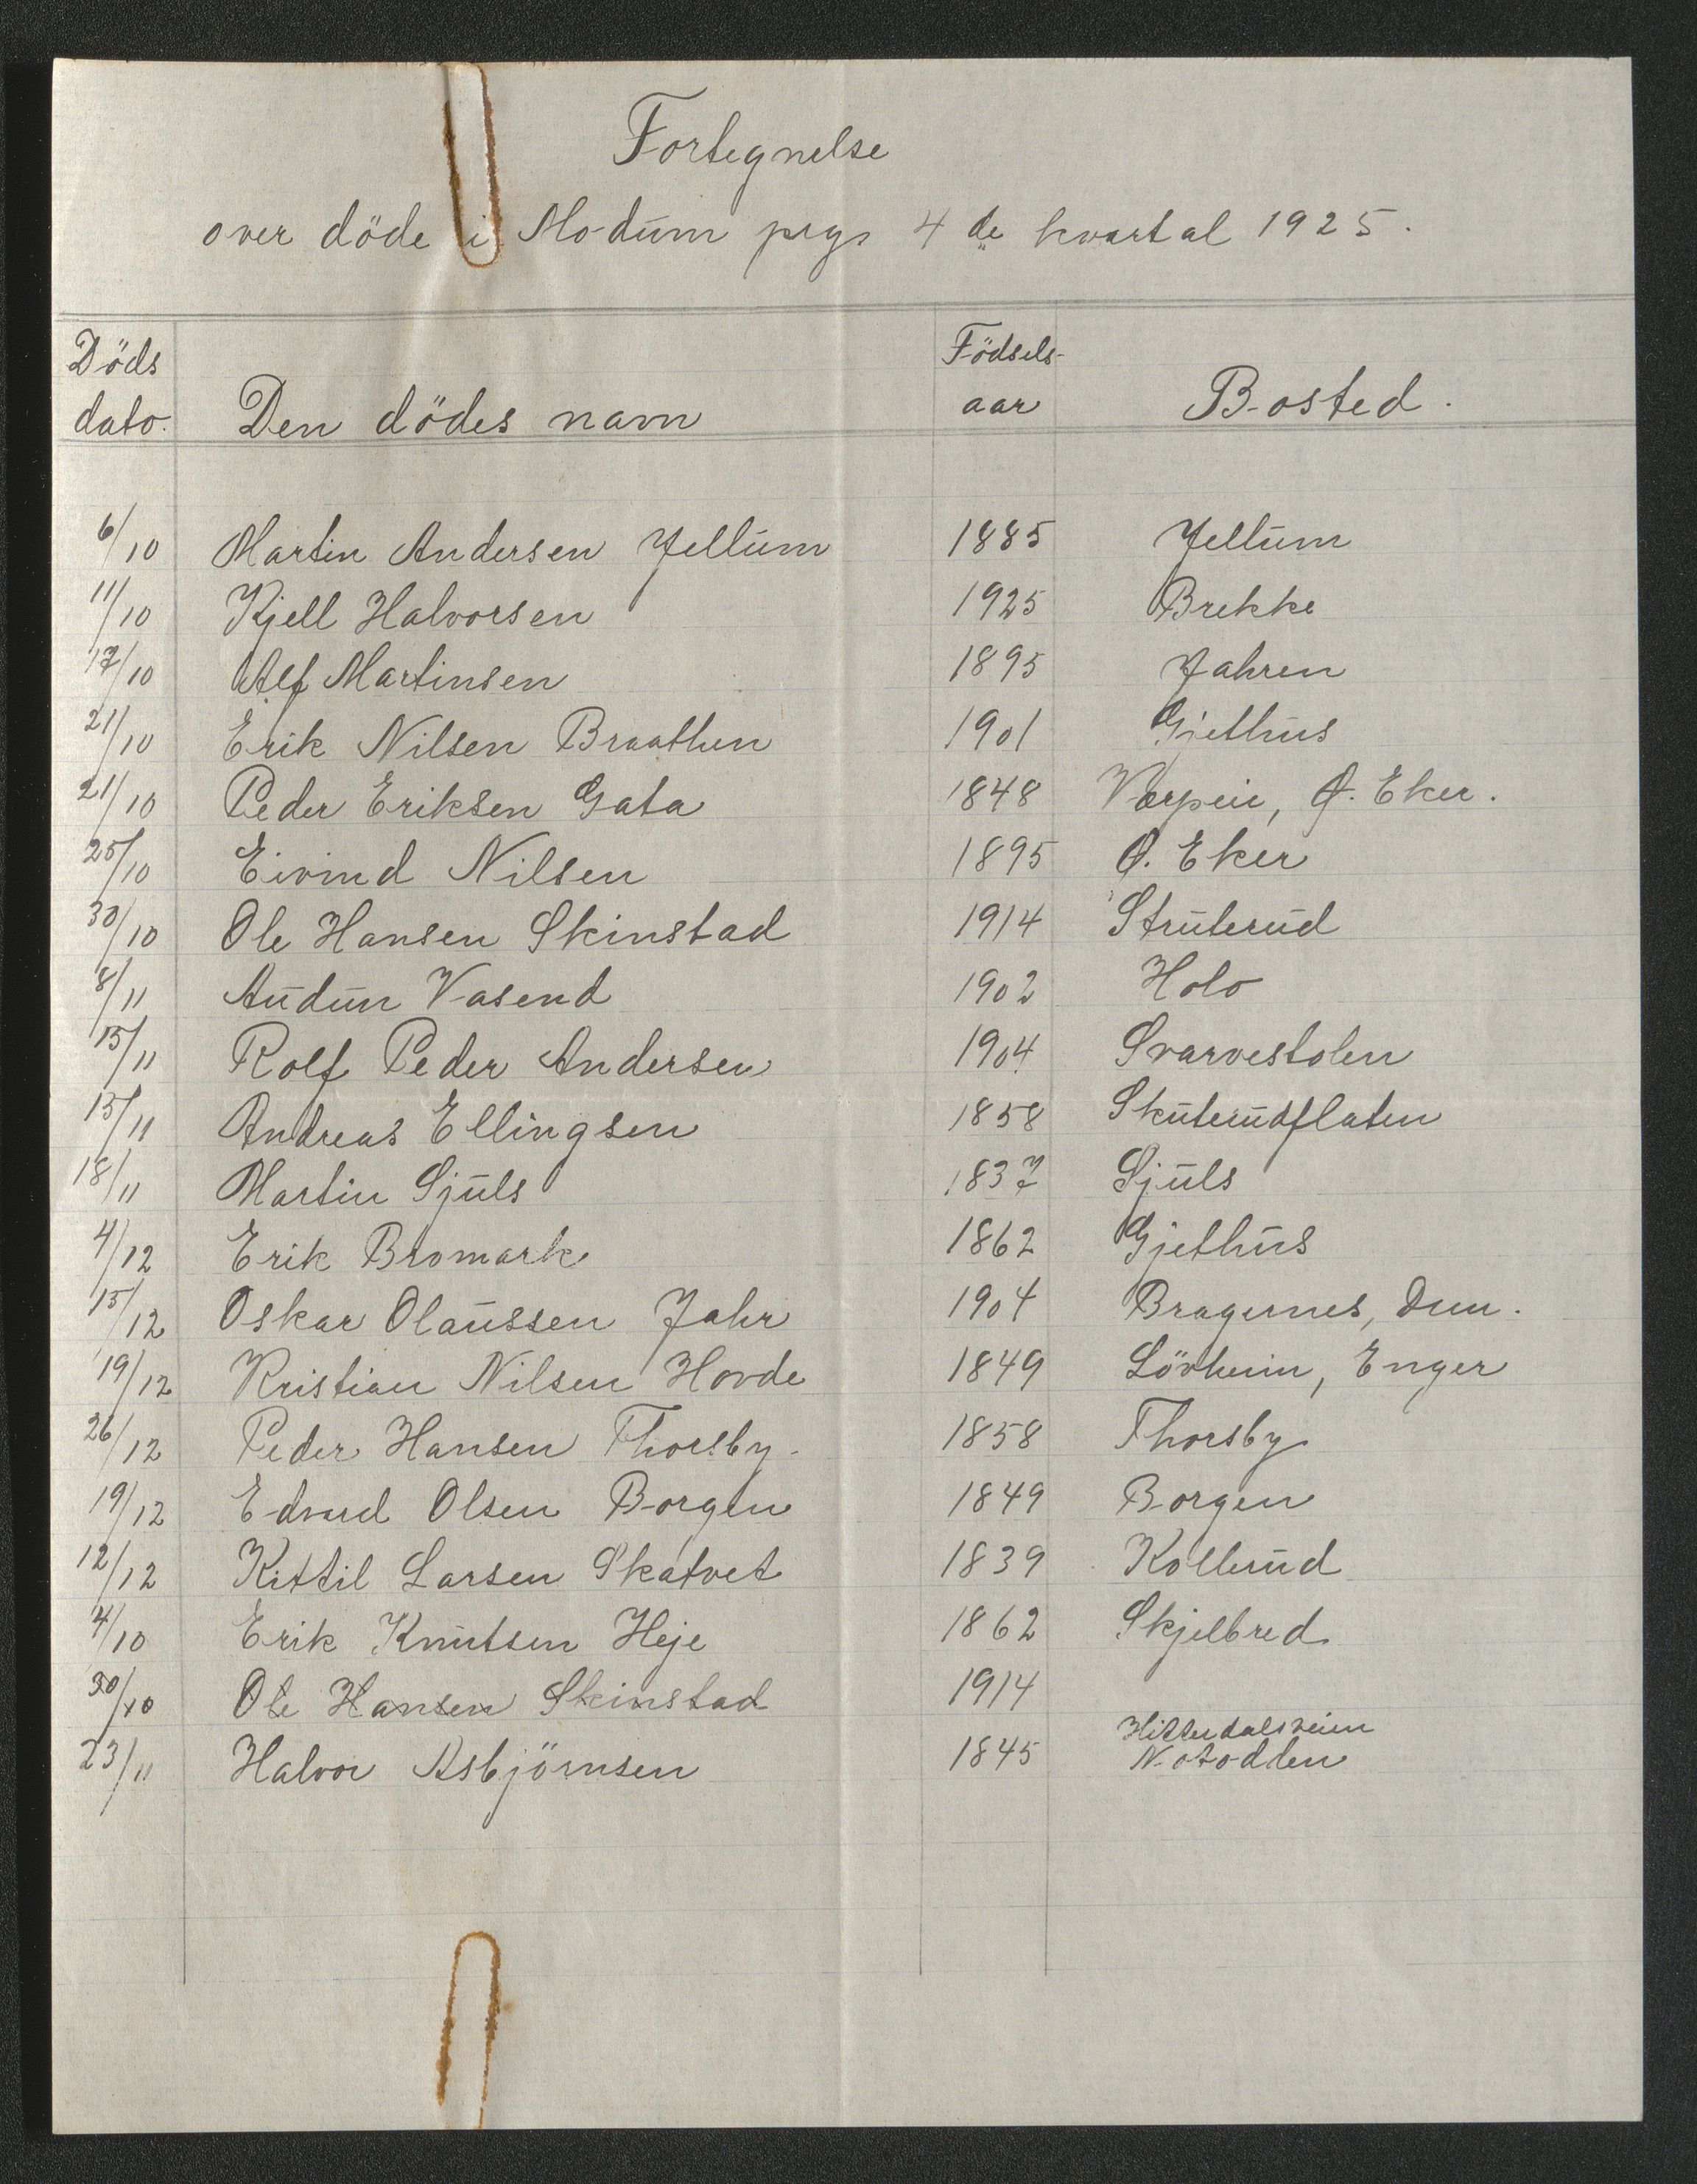 Fortegnelse
over döde i Modum prgj 4de kvartal 1925.
Döds dato. Den dödes navn Födsels-aar Bosted.
6/10 Martin Andersen Jellum 1885 Jellum
11/10 Kjell Halvorsen 1925 Brekke
17/10 Alf Martinsen 1895 Jahren
21/10 Erik Nilsen Braathen 1901 Gjethus
21/10 Peder Eriksen Gata 1848 Varpen, Ø. Eker.
25/10 Eivind Nilsen 1895 Ø. Eker
30/10 Ole Hansen Skinstad 1914 Struterud
8/11 Audun Vasend 1902 Holo
15/11 Rolf Peder Andersen 1904 Svarvestolen
15/11 Andreas Ellingsen 1858 Skuterudflaten
18/11 Martin Sjuls 1837 Sjuls
4/12 Erik Bromark 1862 Gjethus
15/12 Oskar Olaussen Jahr 1904 Bragernes, Dmn.
19/12 Kristian Nilsen Hovde 1849 Lövheim, Enger
26/12 Peder Hansen Thorsby. 1858 Thorsby
19/12 Edvard Olsen Borgen 1849 Borgen
12/12 Kittil Larsen Skatvet 1839 Kollerud
4/10 Erik Knutsen Heje 1862 Skjelbred
30/10 Ole Hansen Skinstad 1914
23/11 Halvor Asbjörnsen 1845 Hitterdalsveien Notodden